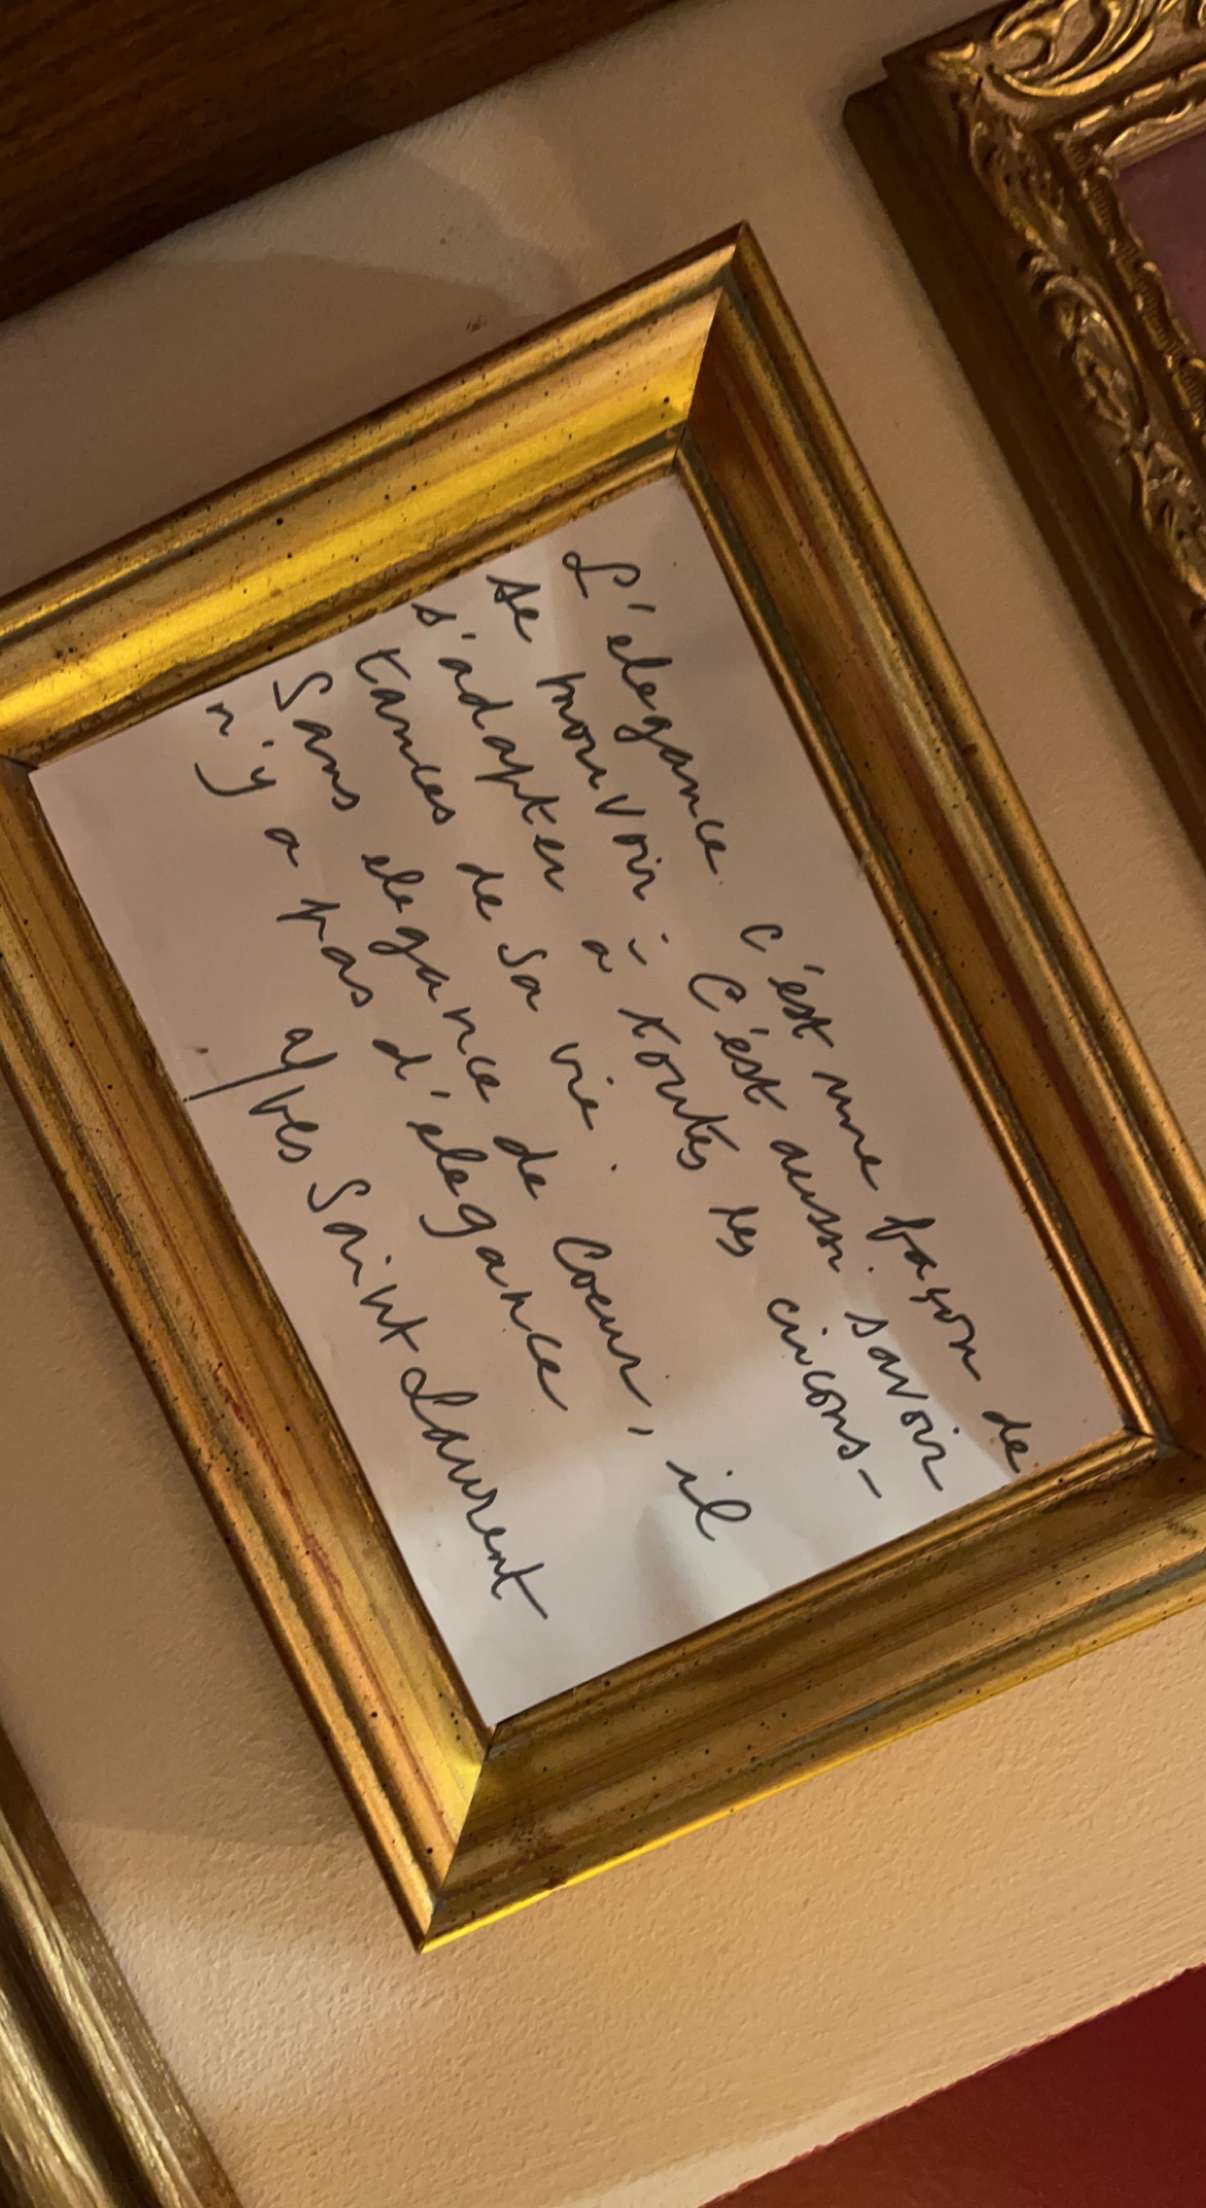 L'elegance c'est une façon de
se mouvoir. C'est aussi savoir
s'adapter a toutes les circons-
tances de sa vie.
Sans elegance de Coeur, il
n'y a pas d'elegance
Yves Saint Laurent